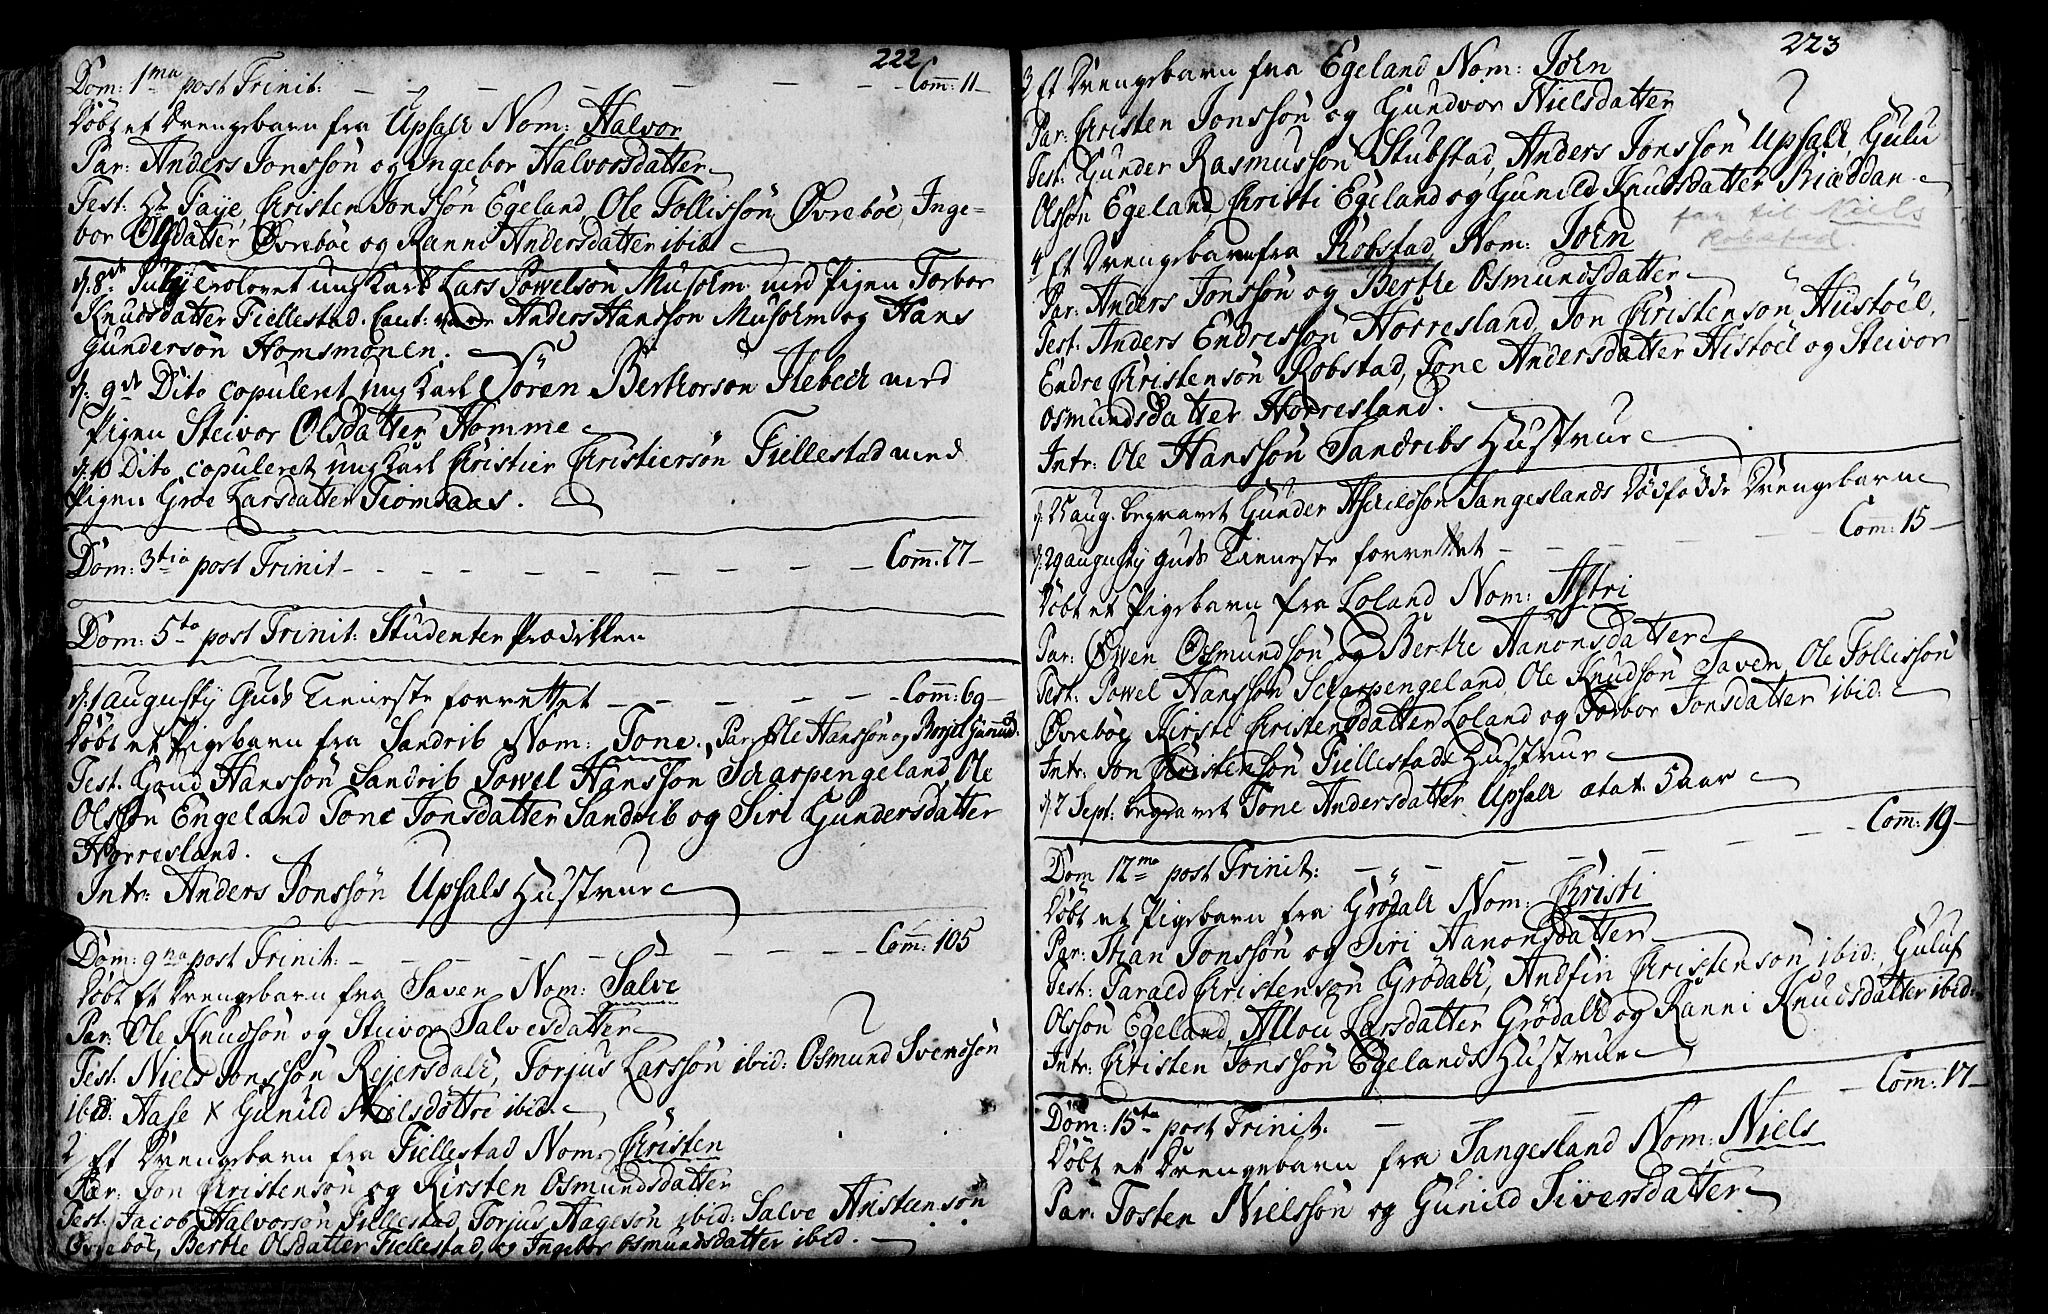 222
Dom: 1ma post Trinit: — — — — — — Com: 11 —
Döbt et Drengebarn fra Upsall Nom: Halvor
Par: Anders Jonssön og Ingebor Halvorsdatter
Test: Hr Faye, Christen Jonssön Egeland, Ole Tollissön Övreböe, Inge=
bor Olsdatter Övreböe og Ranni Andersdatter ibid.
d. 8de July trolovet ungkarl Lars Powelsön Musolm med Pigen Torbor
Knudsdatter Fiellestad. Caut: Anders Hanssön Musolm og Hans
Gundersön Homsmonen.
d. 9de Dito copuleret ungkarl Sören Berthorsön med
Pigen Steivor Olsdatter Homme
d. 10 Dito copuleret ungkarl Christier Christiersön Fiellestad med
Pigen Groe Larsdatter Tiomsaas.
Dom: 3tia post Trinit — — — — — — Com: 77 —
Dom: 5ta post Trinit: Studenter Prædiken
d. 1 augusty Guds Tieneste forrettet — — — — Com: 69 —
Döbt et Pigebarn fra Sandrib Nom: Tone. Par: Ole Hanssön og
Test: Hanssön Sandrib Powel Hanssön Scharpengeland, Ole
Olssön Engeland Tone Jonsdatter Sandrib og Siri Gundersdatter
Horresland.
Intr: Anders Jonssön Upsals Hustrue
Dom: 9na post Trinit: — — — — — — Com: 105
Döbt Et Drengebarn fra Saven Nom: Salve
Par: Ole Knudsön og Steivor Salvesdatter
Test: Niels Jonssön Rejersdall, Torjus Larssön ibid: Osmund Svendsön
ibid: Aase X Gunild Nielsdöttre ibid.
2 Et Drengebarn fra Fiellestad Nom: Christen
Par: Jon Christensön og Kirsten Osmundsdatter
Test: Jacob Halvorsön Fiellestad, Torjus Aagesön ibid: Salve
Övreböe, Berthe Olsdatter Fiellestad, og Ingebor Osmundsdatter ibid.
223
3 Et Drengebarn fra Egeland Nom: Joen
Par: Christen Jonssön og Gundvor Nielsdatter
Test: Gunder Rasmussön Stubstad, Anders Jonssön Upsall, Gulu
Olssön Egeland Christi Egeland og Gunild Knudsdatter
far til Niels
Robstad.
4 Et Drengebarn fra Robstad, Nom: Joen
Par: Anders Jonssön og Berthe Osmundsdatter
Test: Anders Endressön Horresland, Jon Christensön Hustöel,
Endre Christensön Robstad, Tone Andersdatter Histöel og Steivor
Osmundsdatter Horresland.
Intr: Ole Hanssön Sandribs Hustrue
d. 25 aug. begravet Gunder Sangeslands Dödfödde Drengebarn
d. 29 augusty Guds Tieneste forrettet — — — — Com: 15 —
Döbt et Pigebarn fra Loland Nom: Astri
Par: Öwen Osmundsön og Berthe Aanonsdatter
Test: Powel Hanssön Scharpengeland, Ole Knudsön Saven, Ole Tollissön
Övreböe, Kirsti Christensdatter Loland og Torbor Jonsdatter ibid:
Intr: Jon Christensön Fiellestads Hustrue
d. 7 Sept: begravet Tone Andersdatter Upsall ætat. 5 aar
Dom 12ma post Trinit: — — — — — Com: 19 —
Döbt et Pigebarn fra Grödall Nom: Christi
Par: Stian Jonssön og Siri Aanonsdatter
Test: Tarald Christensön Grödall, Andfin Christensön ibid:, Guluf
Olssön Egeland, Allou Larsdatter Grödall og Ranni Knudsdatter ibid:
Intr: Christen Jonssön Egelands Hustrue
Dom: 15ta post Trinit: — — — Com: 17 —
Döbt et Drengebarn fra Sangesland Nom: Niels
Par: Tosten Nielssön og Gunild Siversdatter